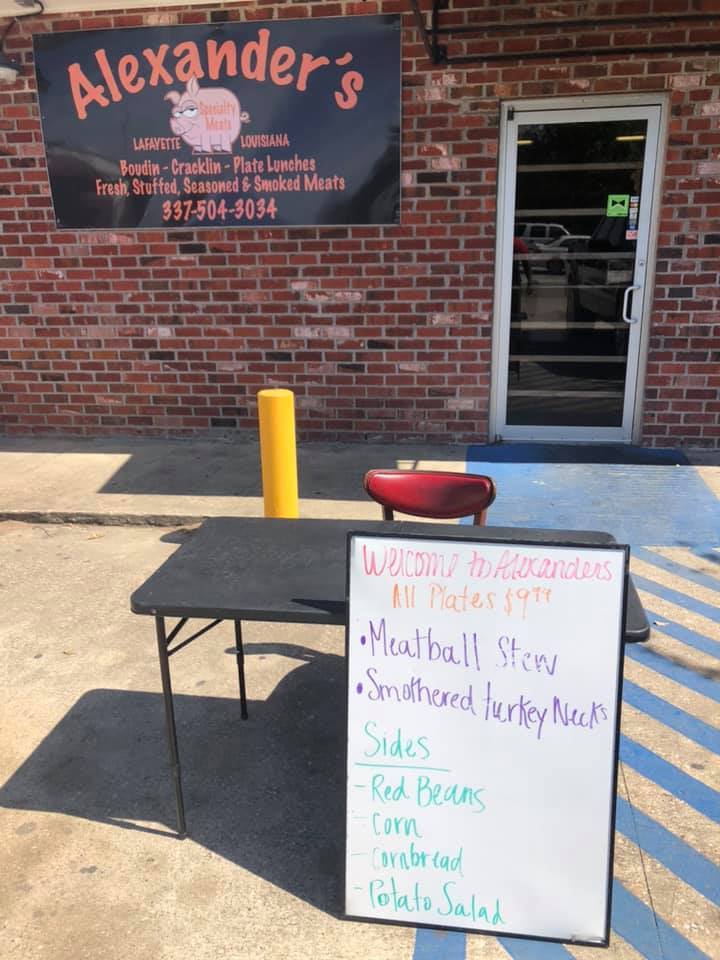 Alexander's
Specialty
Meats
LAFAYETTE LOUISIANA
Boudin - Cracklin - Plate Lunches
Fresh, Stuffed, Seasoned & Smoked Meats
337-504-3034
Welcome to Alexanders
All Plates $9.99
• Meatball Stew
• Smothered turkey Necks
Sides
- Red Beans
- Corn
- Cornbread
- Potato Salad